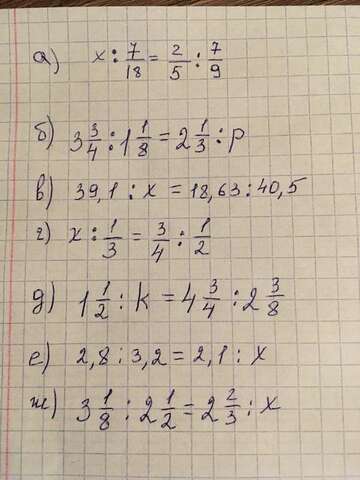 а) x : 7/18 = 2/5 : 7/9
б) 3 3/4 : 1 1/8 = 2 1/3 : p
в) 39,1 : x = 18,63 : 40,5
г) x : 1/3 = 3/4 : 1/2
д) 1 1/2 : k = 4 3/4 : 2 3/8
е) 2,8 : 3,2 = 2,1 : x
ж) 3 1/8 : 2 1/2 = 2 2/3 : x